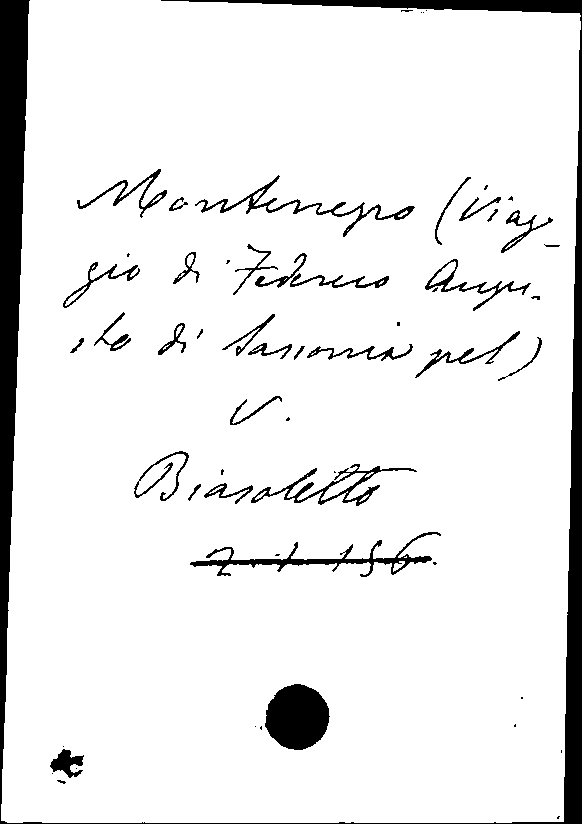 Montenegro (Viag-
gio di Federico Augu-
sto di Sassonia pel)
V.
Biasoletto
2.1.156.